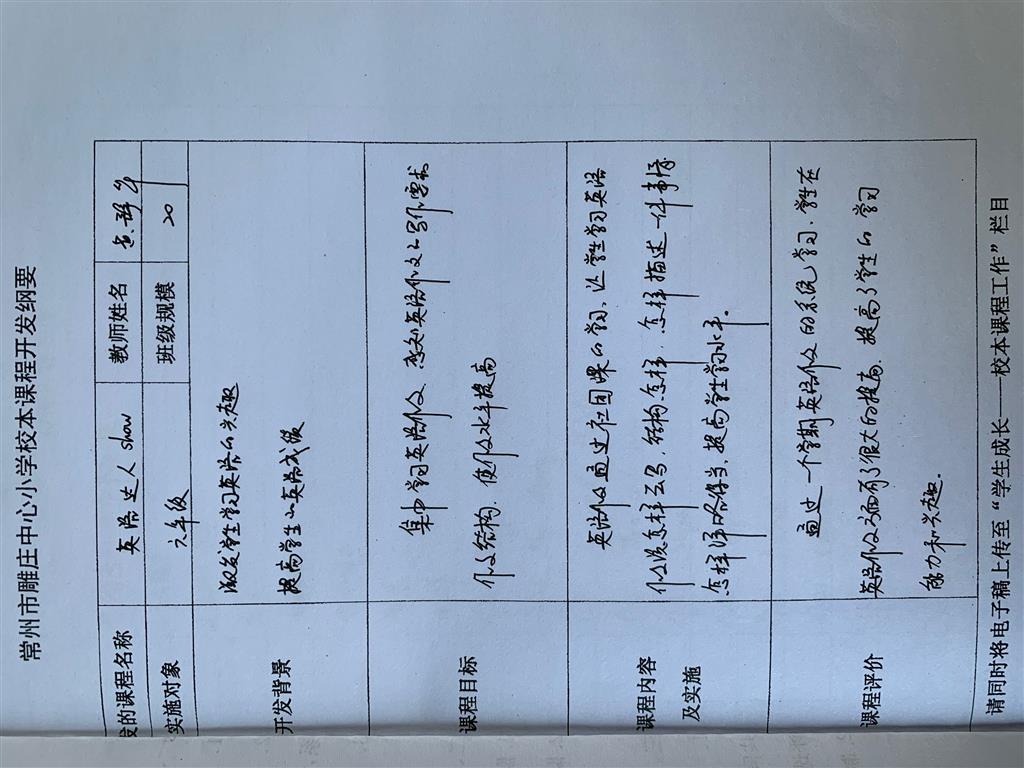 常州市雕庄中心小学校本课程开发纲要
发的课程名称 英语达人show 教师姓名
实施对象 六年级 班级规模 20
开发背景
激发学生学习英语的兴趣
提高学生的英语成绩
课程目标
集中学习英语作文,感知英语作文的写作要求
作文结构,使作文水平提高
课程内容
及实施
英语作文通过社团课的学习,让学生学习英语
作文该怎样去写,结构怎样,怎样描述一件事情
怎样详略得当,提高学生学习水平。
课程评价
通过一个学期英语作文的系统学习,学生在
英语作文方面有了很大的提高,提高了学生的学习
能力和兴趣。
请同时将电子稿上传至“学生成长——校本课程工作”栏目